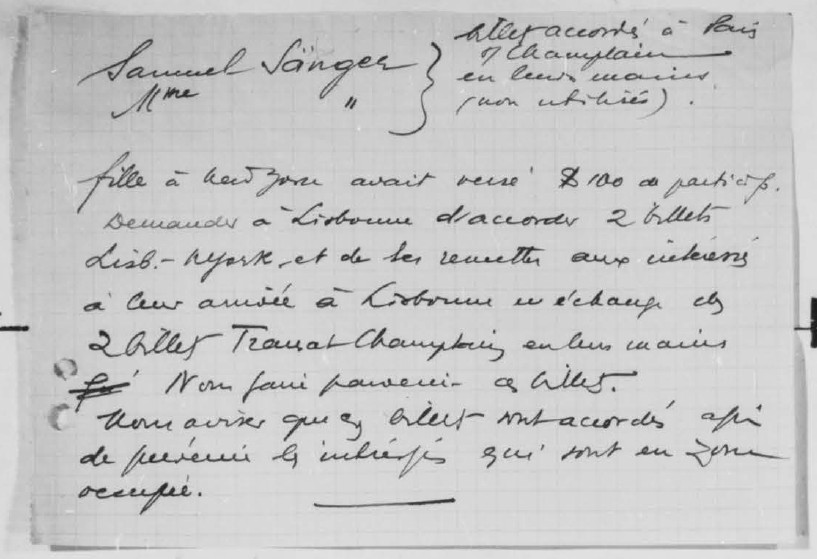 Samuel Sänger
Mme "
billets accordés à Paris
s/ Champlain
en leurs mains
(non utilisés).
fille à New York avait versé $100 de particip.
Demander à Lisbonne d'accorder 2 billets
Lisb.- NYork, et de les remettre aux intéressés
à leur arrivée à Lisbonne en échange des
2 billets Transat Champlain en leurs mains
Nous faire parvenir ces billets.
Nous aviser que ces billets sont accordés afin
de prévenir les intéressés qui sont en zone
occupée.